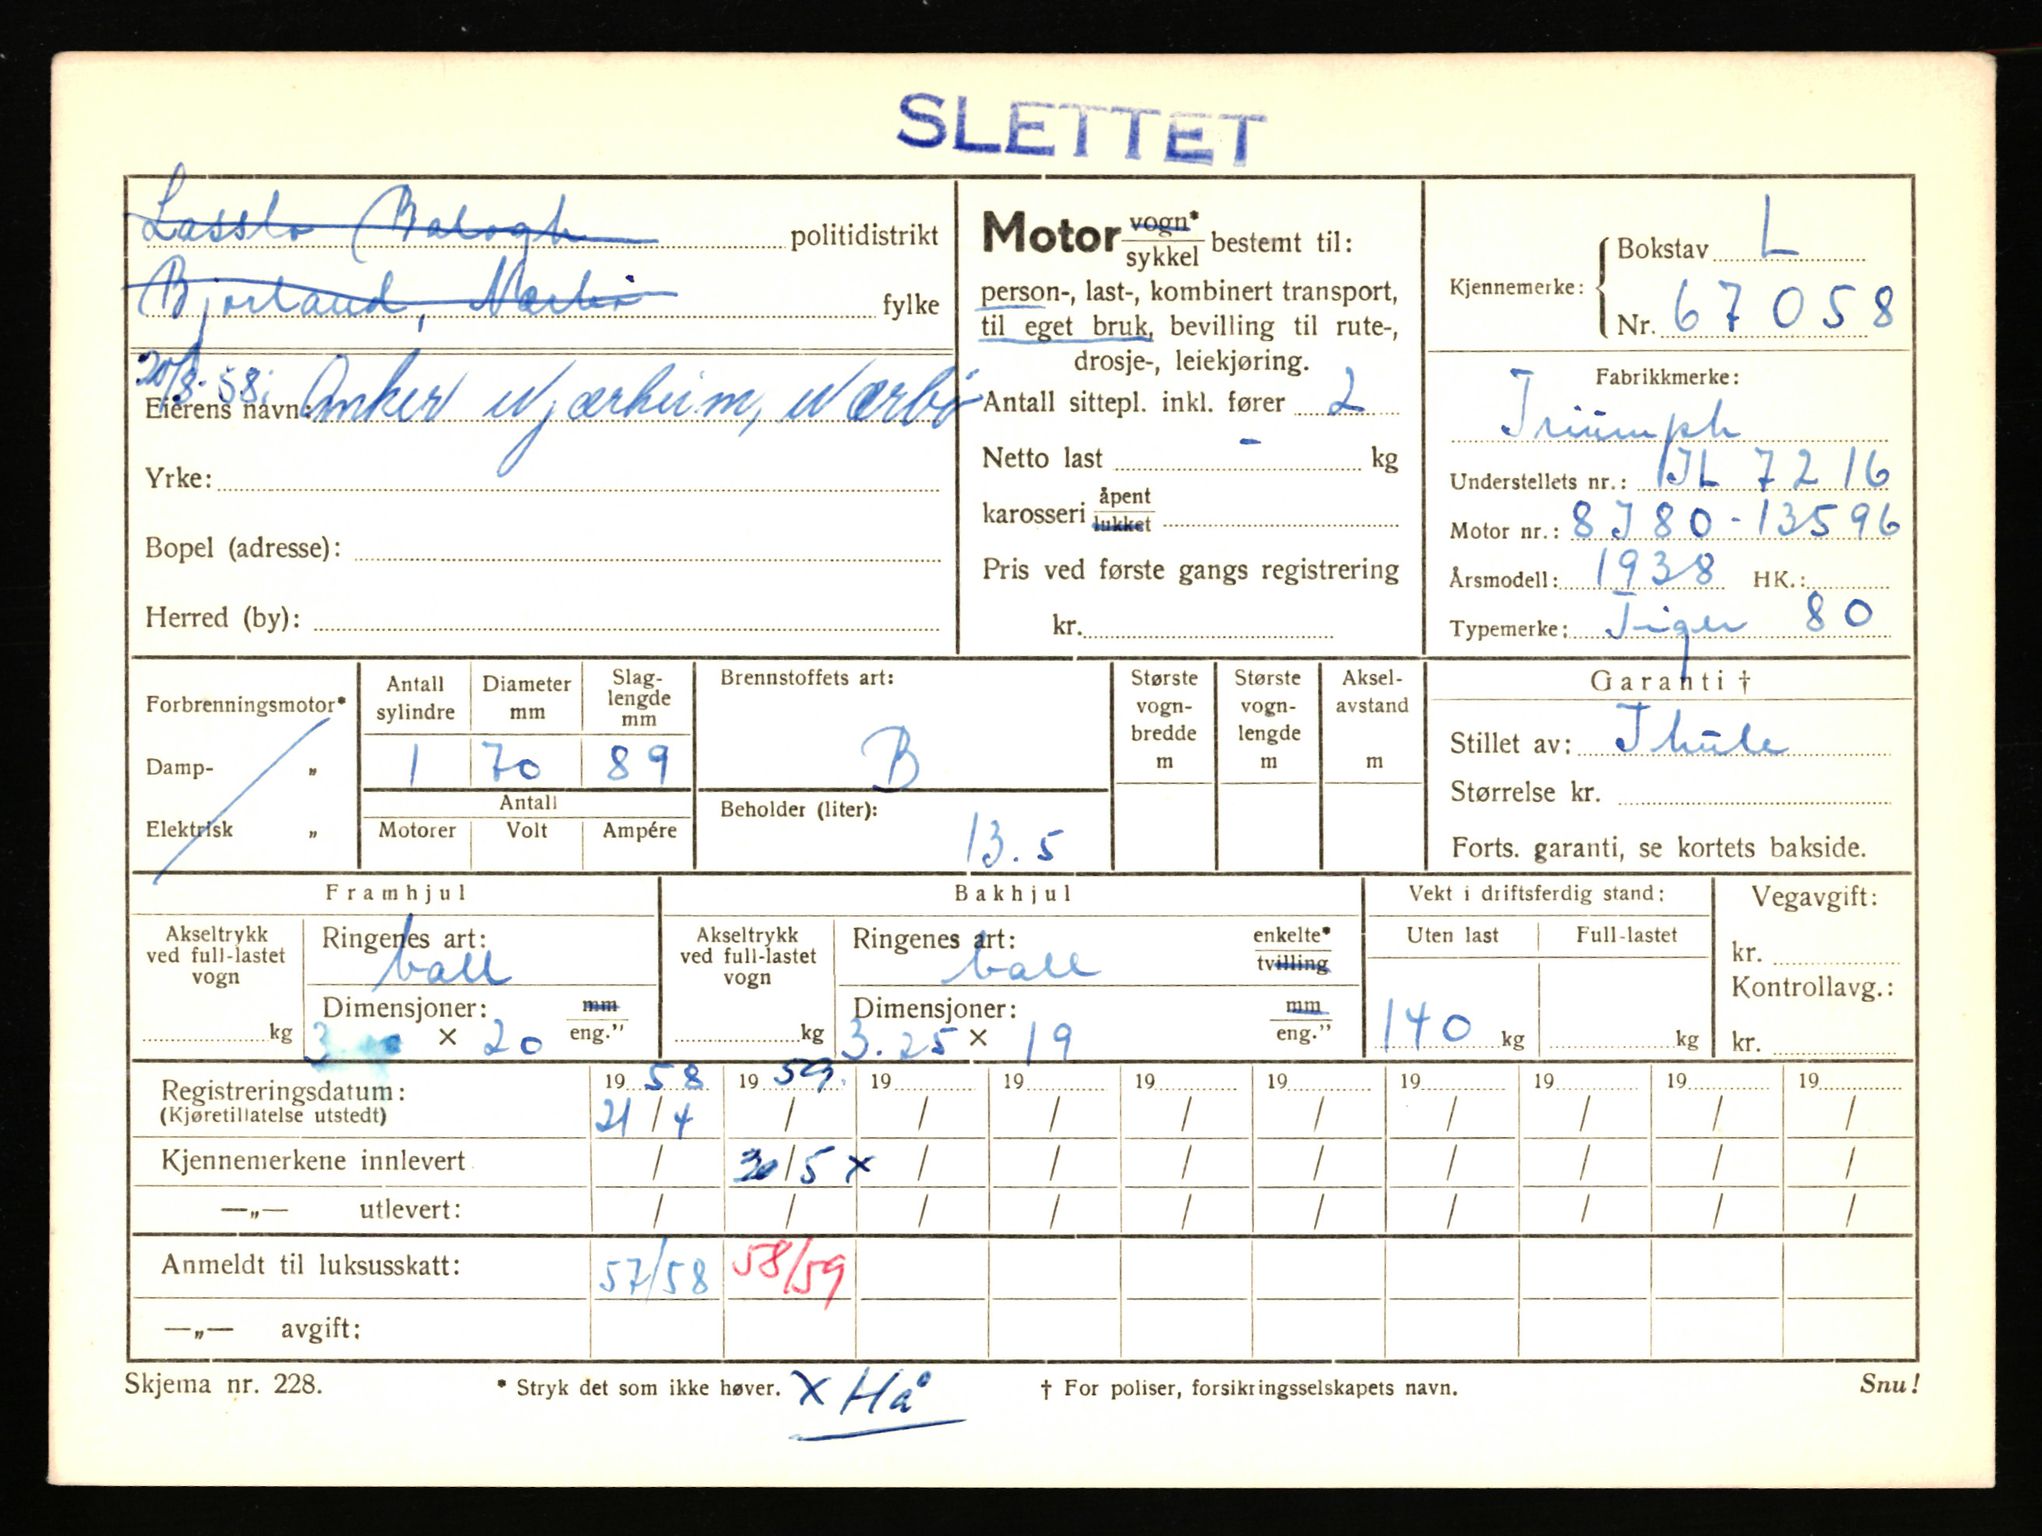 SLETTET
Lasslo Balogh politidistrikt
Bjorland, Nærbø fylke
20/8-58. Eierens navn: Anker Njærheim, Nærbø
Yrke:
Bopel (adresse):
Herred (by):
Motor vogn* / sykkel bestemt til:
person-, last-, kombinert transport,
til eget bruk, bevilling til rute-,
drosje-, leiekjøring.
Antall sittepl. inkl. fører 2
Netto last - kg
karosseri åpent / lukket
Pris ved første gangs registrering
kr.
Kjennemerke: { Bokstav L
Nr. 67058
Fabrikkmerke:
Triumph
Understellets nr.: TL 7216
Motor nr.: 8J80-13596
Årsmodell: 1938 HK.:
Typemerke: Tiger 80
Forbrenningsmotor*
Damp- „
Elektrisk „
Antall sylindre Diameter mm Slag-lengde mm
1 70 89
Antall
Motorer Volt Ampére
Brennstoffets art:
B
Beholder (liter):
13.5
Største vogn-bredde m
Største vogn-lengde m
Aksel-avstand m
Garanti †
Stillet av: Thule
Størrelse kr.
Forts. garanti, se kortets bakside.
Framhjul
Akseltrykk ved full-lastet vogn
kg
Ringenes art:
ball
Dimensjoner: mm / eng."
3. × 20
Bakhjul
Akseltrykk ved full-lastet vogn
kg
Ringenes art: enkelte* / tvilling
ball
Dimensjoner: mm / eng."
3.25 × 19
Vekt i driftsferdig stand:
Uten last Full-lastet
140 kg kg
Vegavgift:
kr.
Kontrollavg.:
kr.
Registreringsdatum: 19 58 19 59. 19 19 19 19 19 19 19 19
(Kjøretillatelse utstedt) 21/4 / / / / / / / / /
Kjennemerkene innlevert / 30/5 x / / / / / / / /
—„— utlevert: / / / / / / / / / /
Anmeldt til luksusskatt: 57/58 58/59
—„— avgift:
Skjema nr. 228. * Stryk det som ikke høver. x Hå † For poliser, forsikringsselskapets navn. Snu!